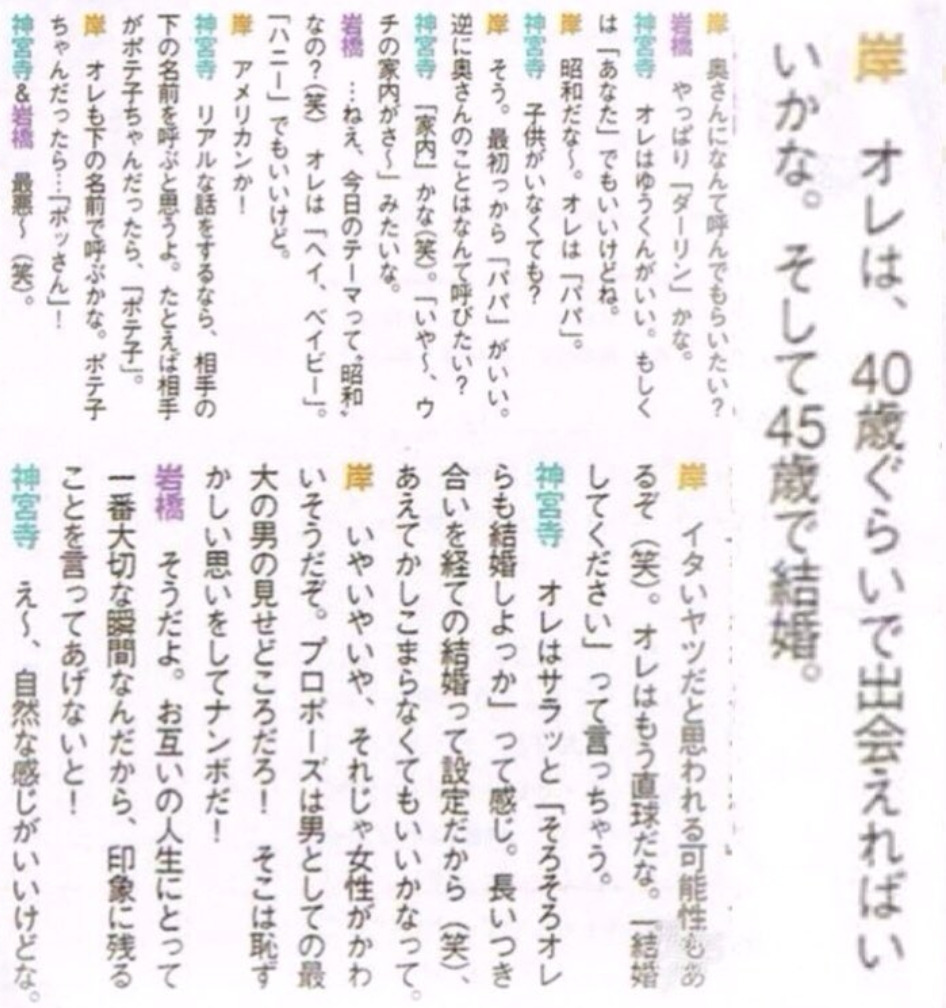 岸　オレは、40歳ぐらいで出会えればい
いかな。そして45歳で結婚。
岸　奥さんになんて呼んでもらいたい？
岩橋　やっぱり「ダーリン」かな。
神宮寺　オレはゆうくんがいい。もしく
は「あなた」でもいいけどね。
岸　昭和だな〜。オレは「パパ」。
神宮寺　子供がいなくても？
岸　そう。最初っから「パパ」がいい。
逆に奥さんのことはなんて呼びたい？
神宮寺　「家内」かな（笑）。「いや〜、ウ
チの家内がさ〜」みたいな。
岩橋　…ねえ、今日のテーマって〝昭和〟
なの？（笑）　オレは「ヘイ、ベイビー」。
「ハニー」でもいいけど。
岸　アメリカンか！
神宮寺　リアルな話をするなら、相手の
下の名前を呼ぶと思うよ。たとえば相手
がポテ子ちゃんだったら、「ポテ子」。
岸　オレも下の名前で呼ぶかな。ポテ子
ちゃんだったら…「ポッさん」！
神宮寺&岩橋　最悪〜（笑）。
岸　イタいヤツだと思われる可能性もあ
るぞ（笑）。オレはもう直球だな。「結婚
してください」って言っちゃう。
神宮寺　オレはサラッと「そろそろオレ
らも結婚しよっか」って感じ。長いつき
合いを経ての結婚って設定だから（笑）、
あえてかしこまらなくてもいいかなって。
岸　いやいやいや、それじゃ女性がかわ
いそうだぞ。プロポーズは男としての最
大の男の見せどころだろ！　そこは恥ず
かしい思いをしてナンボだ！
岩橋　そうだよ。お互いの人生にとって
一番大切な瞬間なんだから、印象に残る
ことを言ってあげないと！
神宮寺　え〜、自然な感じがいいけどな。